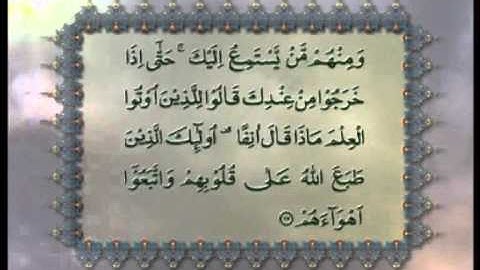 وَمِنْهُمْ مَّنْ يَّسْتَمِعُ اِلَيْكَ ۚ حَتّٰۤى اِذَا
خَرَجُوْا مِنْ عِنْدِكَ قَالُوْا لِلَّذِيْنَ اُوْتُوا
الْعِلْمَ مَاذَا قَالَ اٰنِفًا ۟ اُولٰٓئِكَ الَّذِيْنَ
طَبَعَ اللّٰهُ عَلٰى قُلُوْبِهِمْ وَاتَّبَعُوْۤا
اَهْوَآءَهُمْ